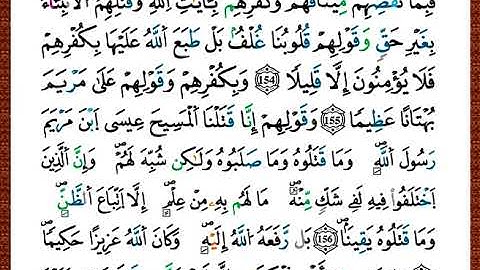 فَبِمَا نَقْضِهِم مِّيثَاقَهُمْ وَكُفْرِهِم بِـَٔايَٰتِ اِ۬للَّهِ وَقَتْلِهِمُ اُ۬لَانۢبِـَٔآءَ
بِغَيْرِ حَقٍّ وَقَوْلِهِمْ قُلُوبُنَا غُلْفُۢ بَلْ طَبَعَ اَ۬للَّهُ عَلَيْهَا بِكُفْرِهِمْ
فَلَا يُؤْمِنُونَ إِلَّا قَلِيلًا 154 وَبِكُفْرِهِمْ وَقَوْلِهِمْ عَلَىٰ مَرْيَمَ
بُهْتَٰنًا عَظِيمًا 155 وَقَوْلِهِمْ إِنَّا قَتَلْنَا اَ۬لْمَسِيحَ عِيسَى اَ۪بْنَ مَرْيَمَ
رَسُولَ اَ۬للَّهِ وَمَا قَتَلُوهُ وَمَا صَلَبُوهُ وَلَٰكِن شُبِّهَ لَهُمْ وَإِنَّ اَ۬لَّذِينَ
اَ۪خْتَلَفُواْ فِيهِ لَفِے شَكٍّ مِّنْهُ مَا لَهُم بِهِۦ مِنْ عِلْمٍ إِلَّا اَ۪تِّبَاعَ اَ۬لظَّنِّ
وَمَا قَتَلُوهُ يَقِينَۢا 156 بَل رَّفَعَهُ اُ۬للَّهُ إِلَيْهِ وَكَانَ اَ۬للَّهُ عَزِيزًا حَكِيمًا